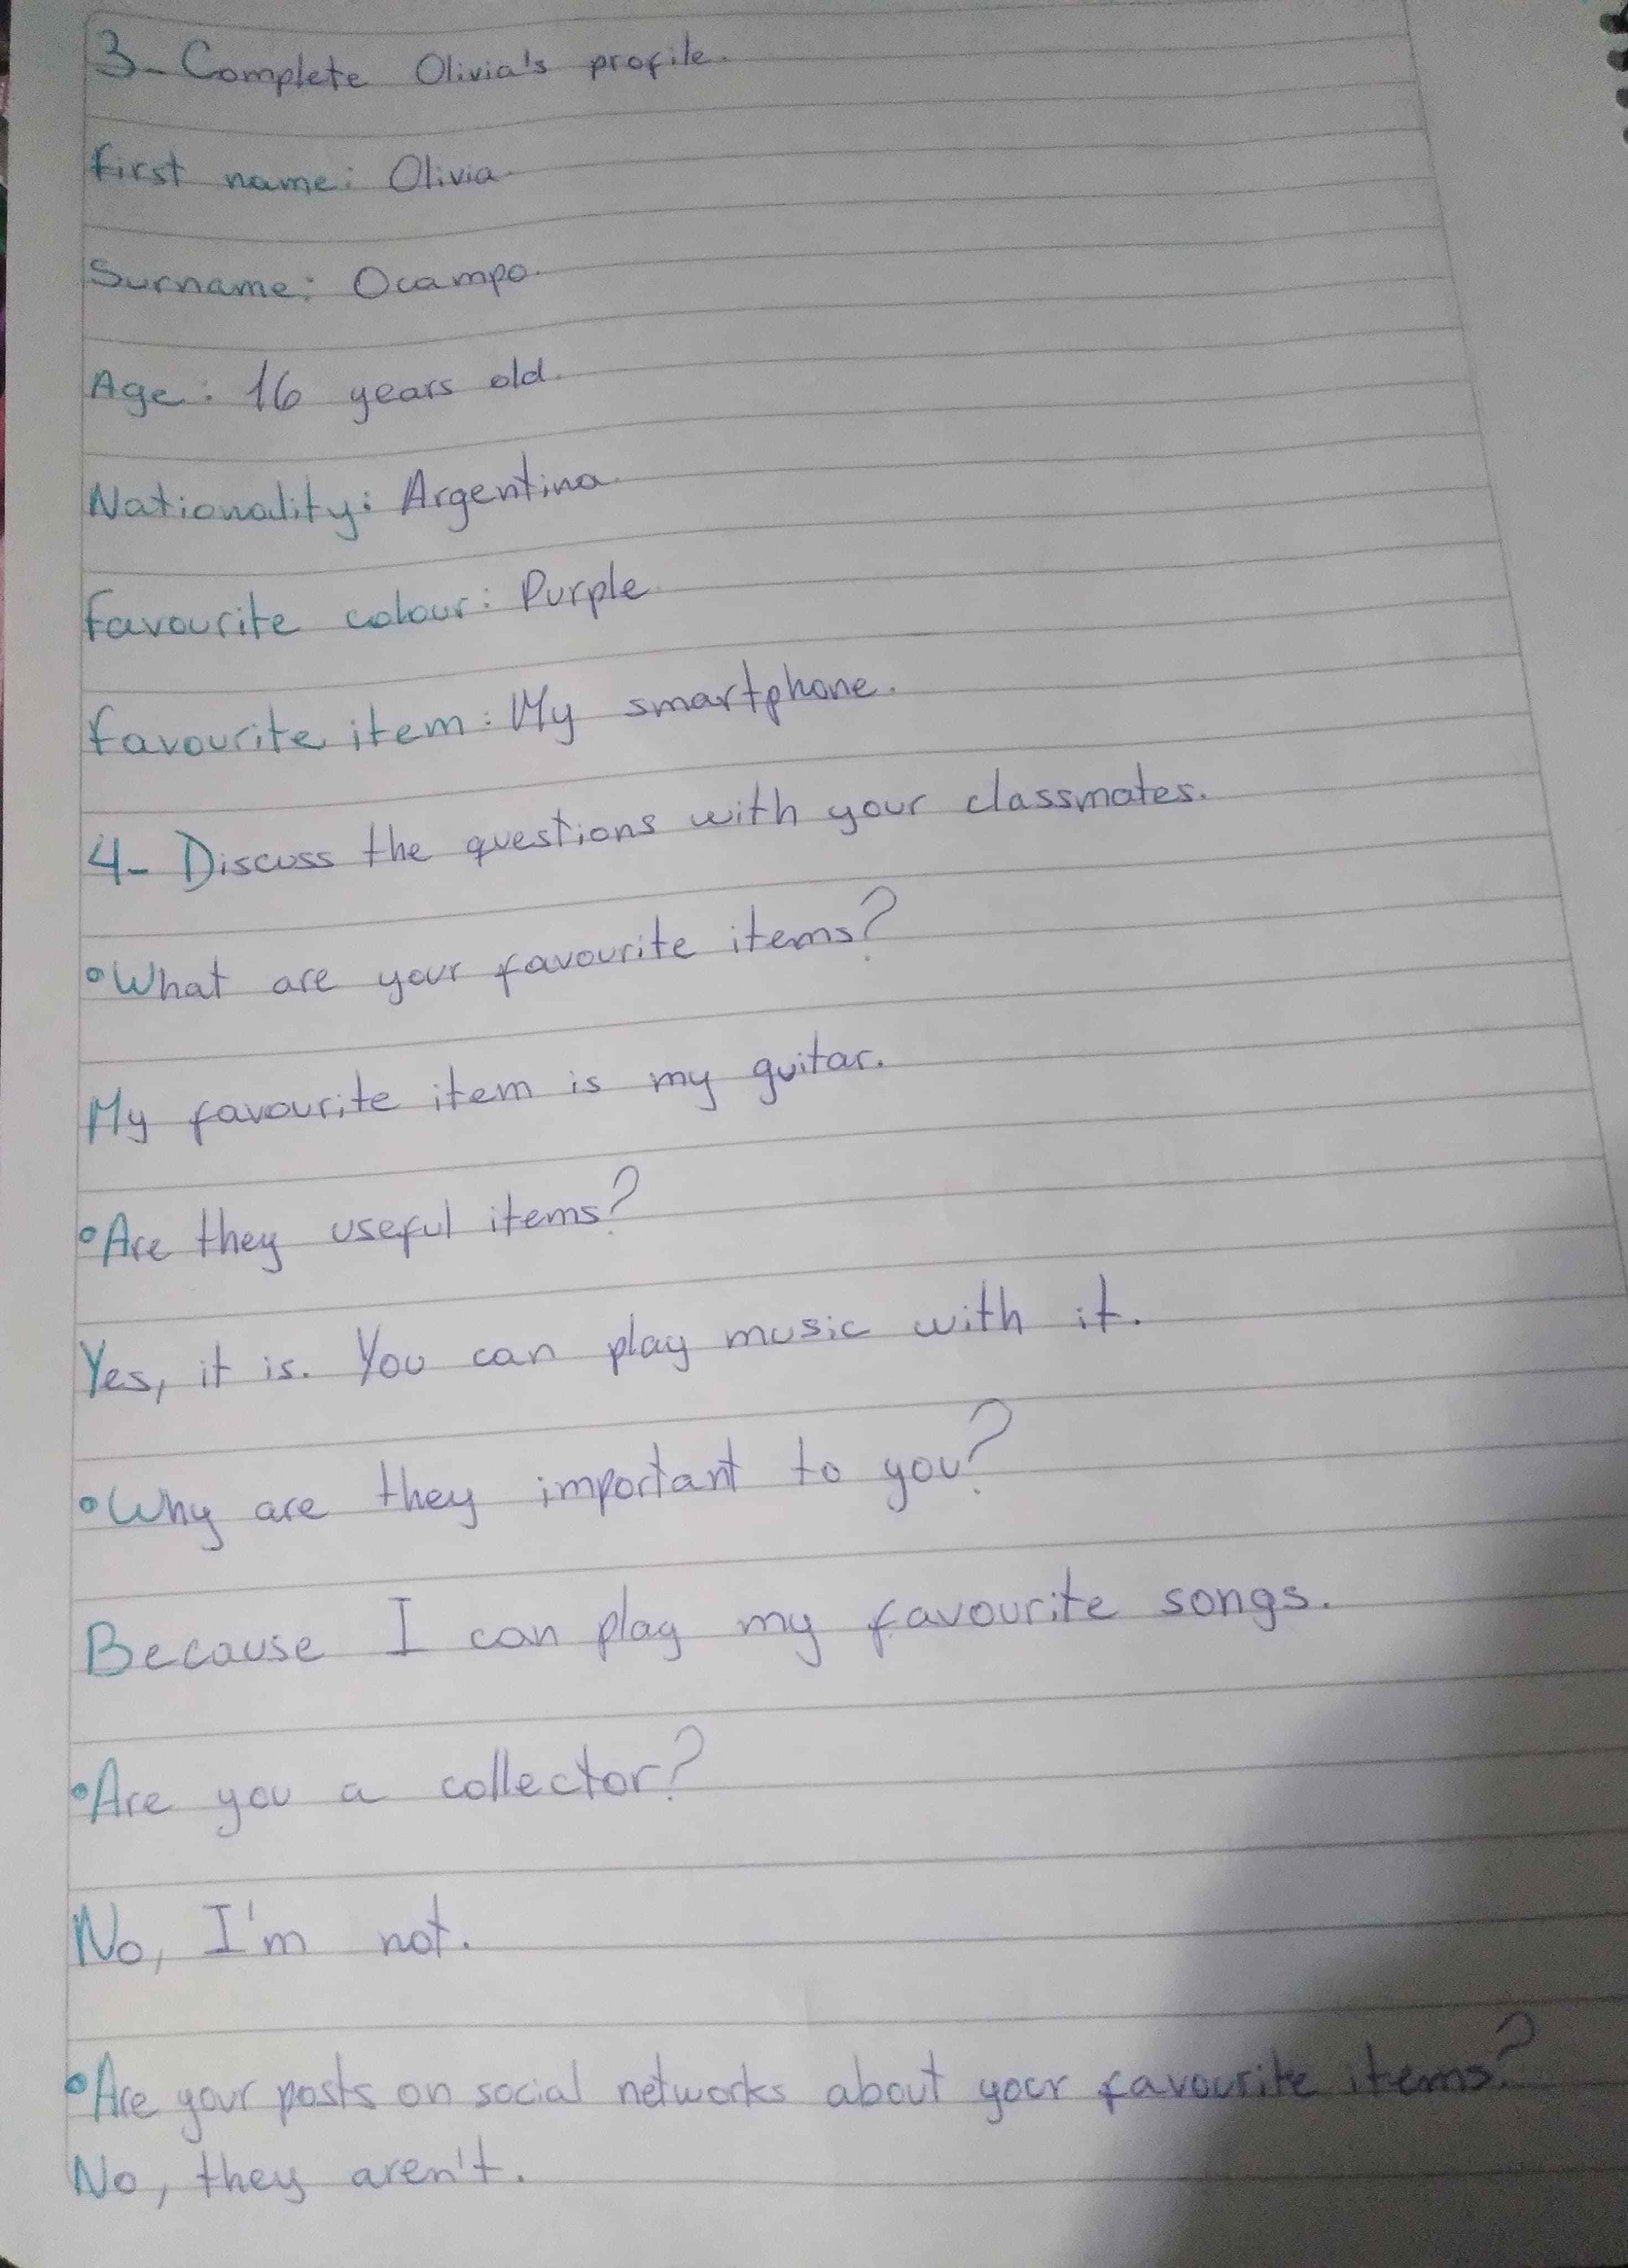 3- Complete Olivia's profile.
First name: Olivia.
Surname: Ocampo.
Age: 16 years old.
Nationality: Argentina.
Favourite colour: Purple.
Favourite item: My smartphone.
4- Discuss the questions with your classmates.
•What are your favourite items?
My favourite item is my guitar.
•Are they useful items?
Yes, it is. You can play music with it.
•Why are they important to you?
Because I can play my favourite songs.
•Are you a collector?
No, I'm not.
•Are your posts on social networks about your favourite items?
No, they aren't.